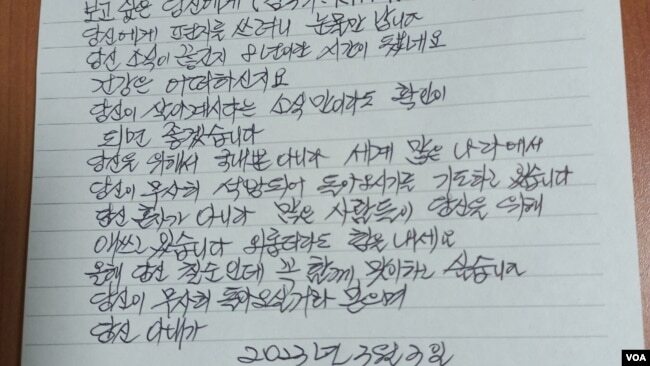 보고 싶은 당신에게 (김국기
당신에게 편지를 쓰려니 눈물만 납니다
당신 소식이 끊긴지 8년이란 시간이 됐네요
건강은 어떠하신지요
당신이 살아계시다는 소식만이라도 확인이
되면 좋겠습니다
당신을 위해서 국내뿐 아니라 세계 많은 나라에서
당신이 무사히 석방되어 돌아오시기를 기도하고 있습니다
당신 혼자가 아니라 많은 사람들이 당신을 위해
애쓰고 있습니다 외롭더라도 힘을 내세요
올해 당신 칠순인데 꼭 함께 맞이하고 싶습니다
당신이 무사히 돌아오실거라 믿으며
당신 아내가
2023년 3월 3일
VOA